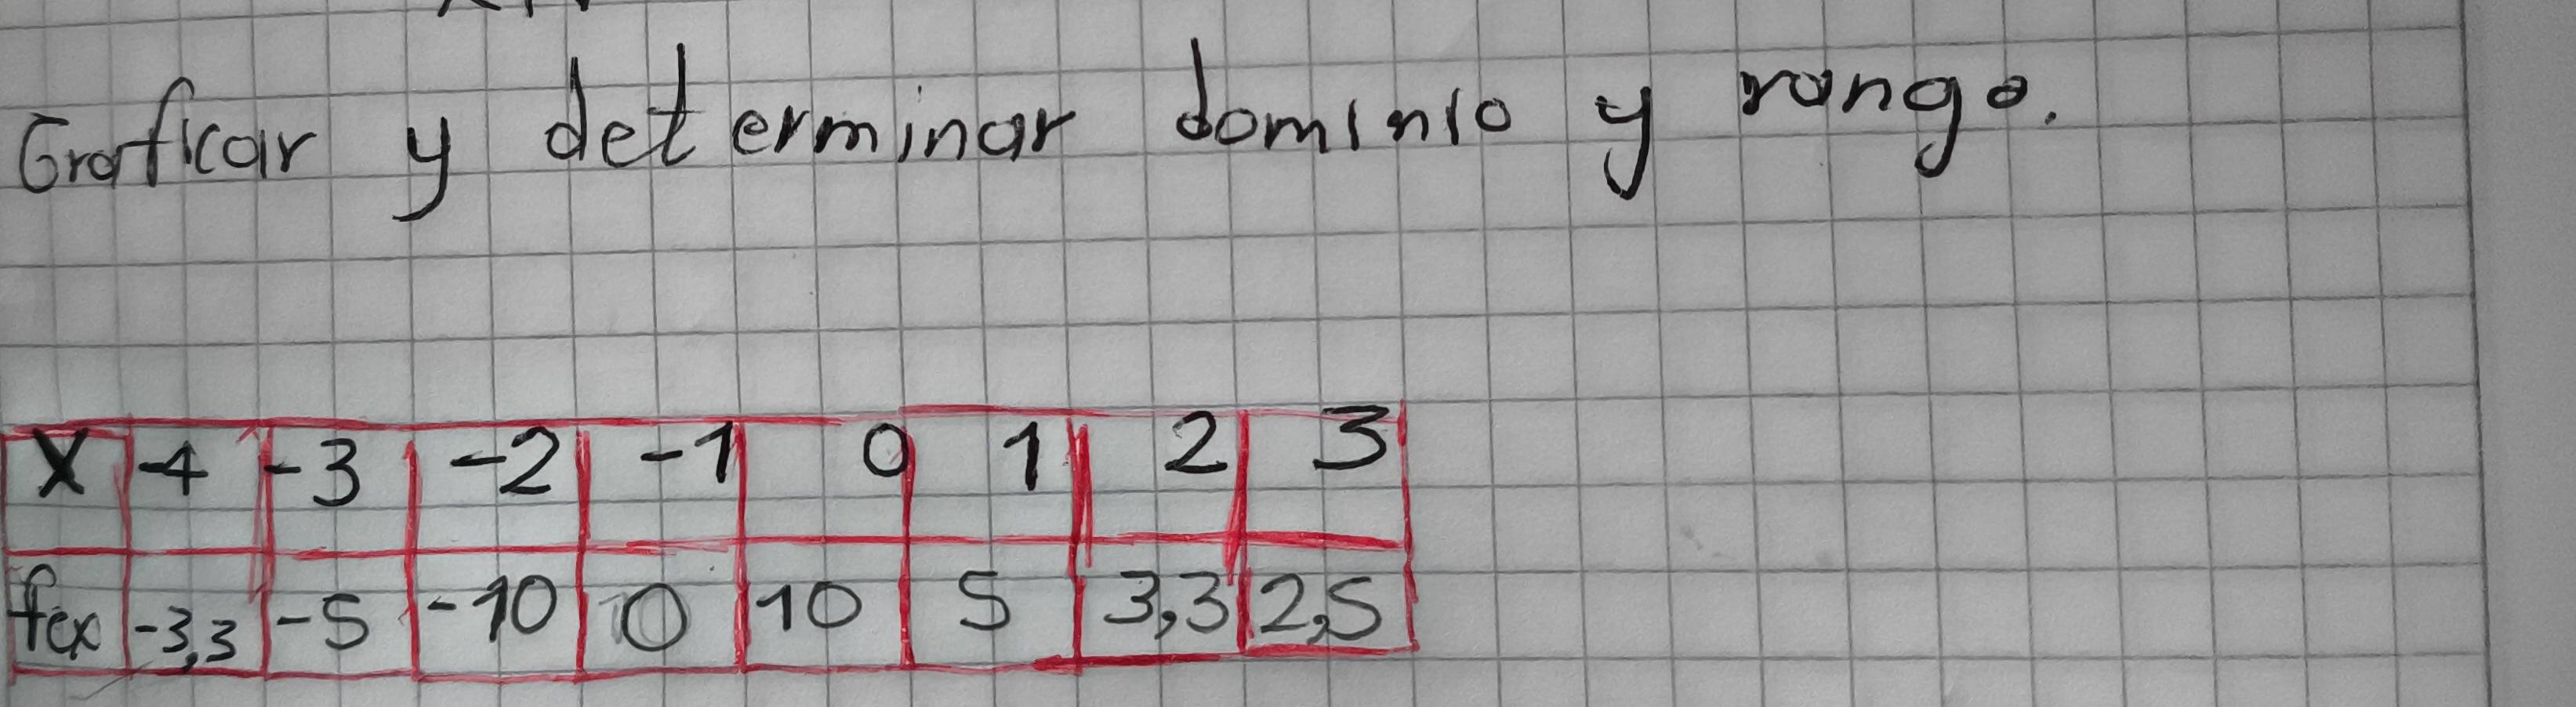 Graficar y determinar dominio y rango.
X -4 -3 -2 -1 0 1 2 3
fcx -3,3 -5 -10 0 10 5 3,3 2,5